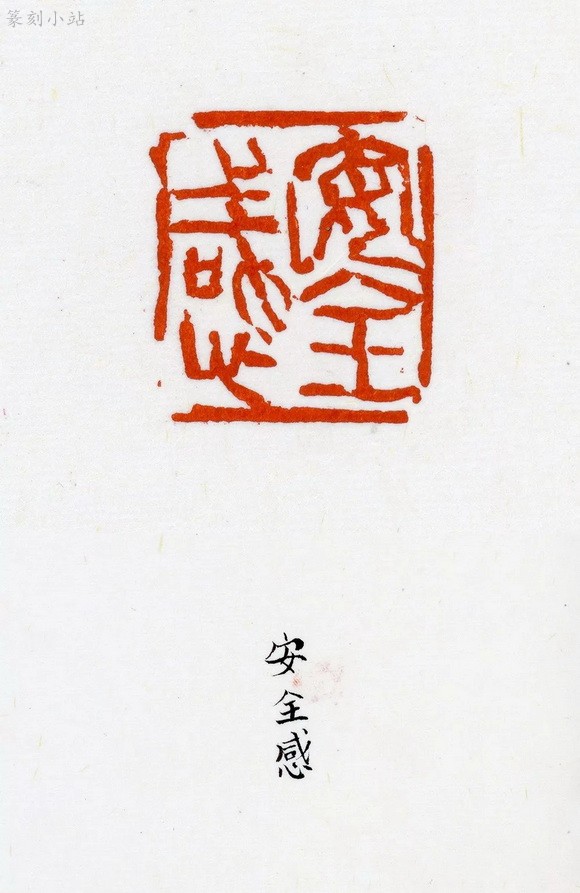 篆刻小站
安全感
安全感